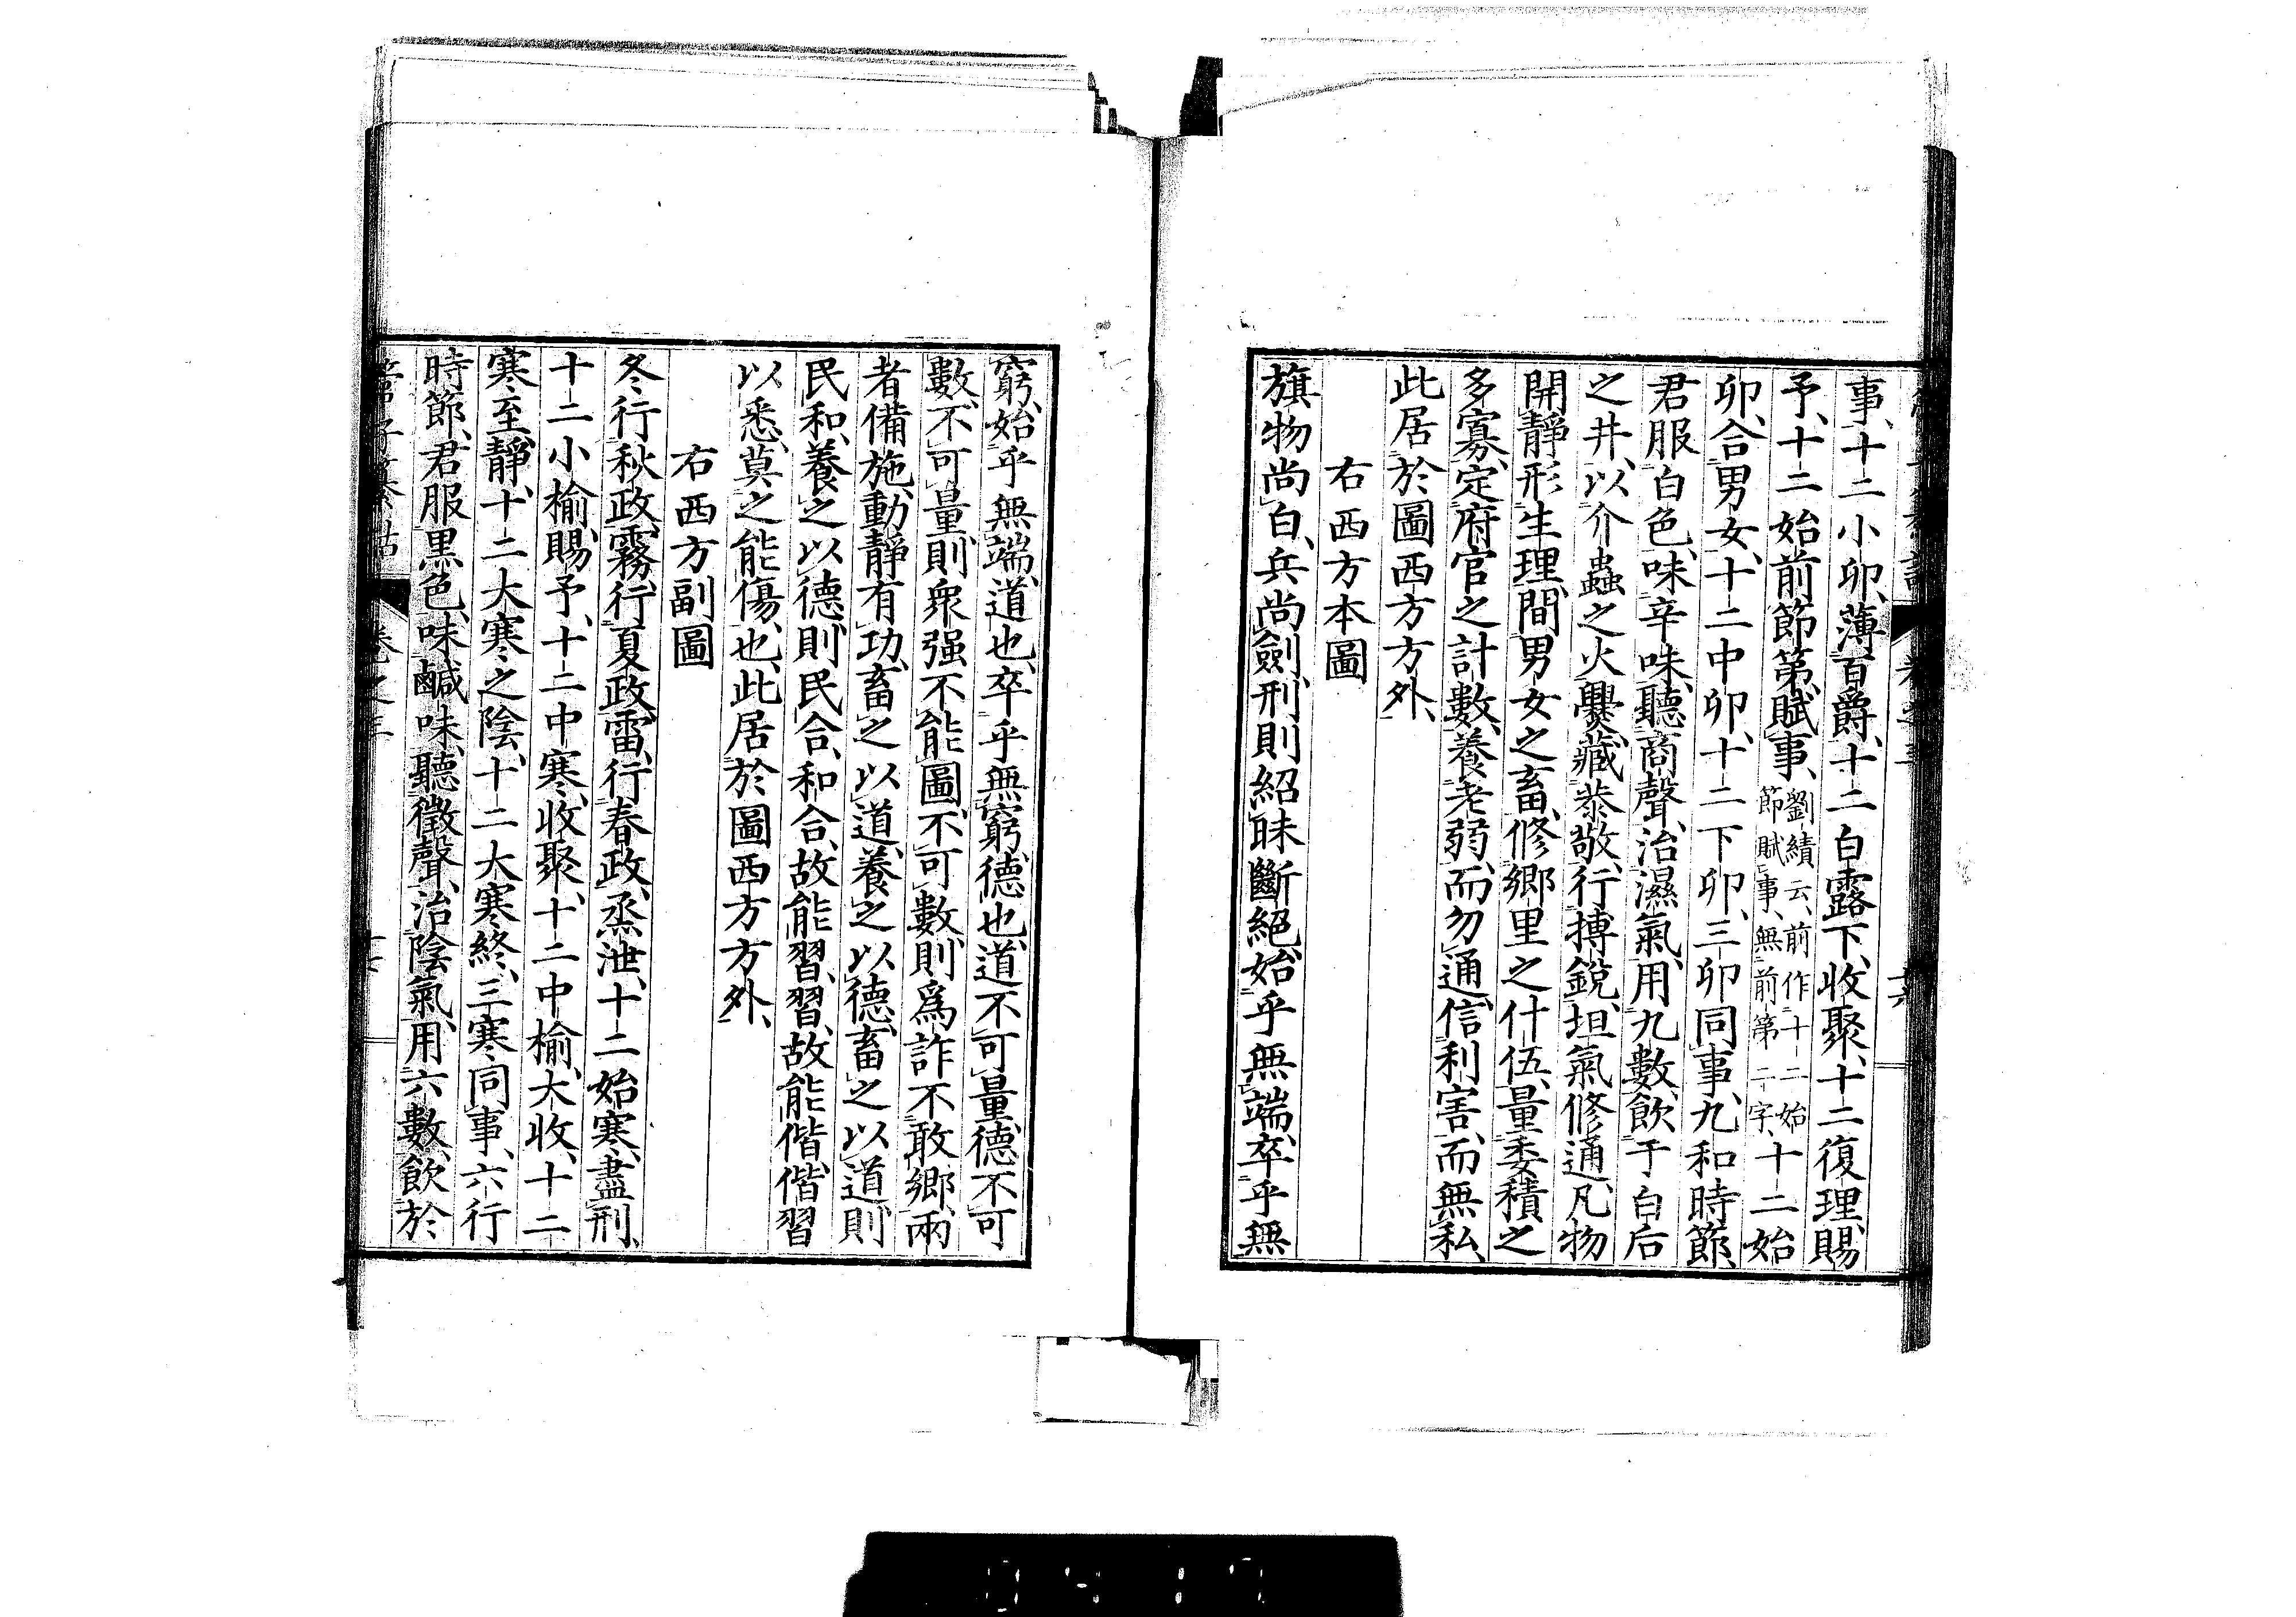 事、十二小卯、薄百爵、十二白露下、收聚、十二復理、賜
予、十二始前節第、賦事、劉績云、前作十二始節賦事、無前第二字、十二始
卯、合男女、十二中卯、十二下卯、三卯同事、九和時節、
君服白色、味辛味、聽商聲、治濕氣、用九數、飮于白后
之井、以介蟲之火爨、藏恭敬、行摶銳、坦氣修通、凡物
開靜形生理、間男女之畜、修鄉里之什伍、量委積之
多寡、定府官之計數、養老弱、而勿通、信利害、而無私、
此居於圖西方方外、
右西方本圖
旗物尚白、兵尚劍、刑則紹昧斷絕、始乎無端、卒乎無
窮、始乎無端、道也、卒乎無窮、德也、道不可量、德不可
數、不可量、則衆强不能圖、不可數、則爲詐不敢鄉、兩
者備施、動靜有功、畜之以道、養之以德、畜之以道、則
民和、養之以德、則民合、和合、故能習、習、故能偕、偕習
以悉、莫之能傷也、此居於圖西方方外、
右西方副圖
冬行秋政、霧、行夏政、雷、行春政、烝泄、十二始寒、盡刑、
十二小榆、賜予、十二中寒、收聚、十二中榆、大收、十二
寒至靜、十二大寒之陰、十二大寒終、三寒同事、六行
時節、君服黑色、味鹹味、聽徵聲、治陰氣、用六數、飮於